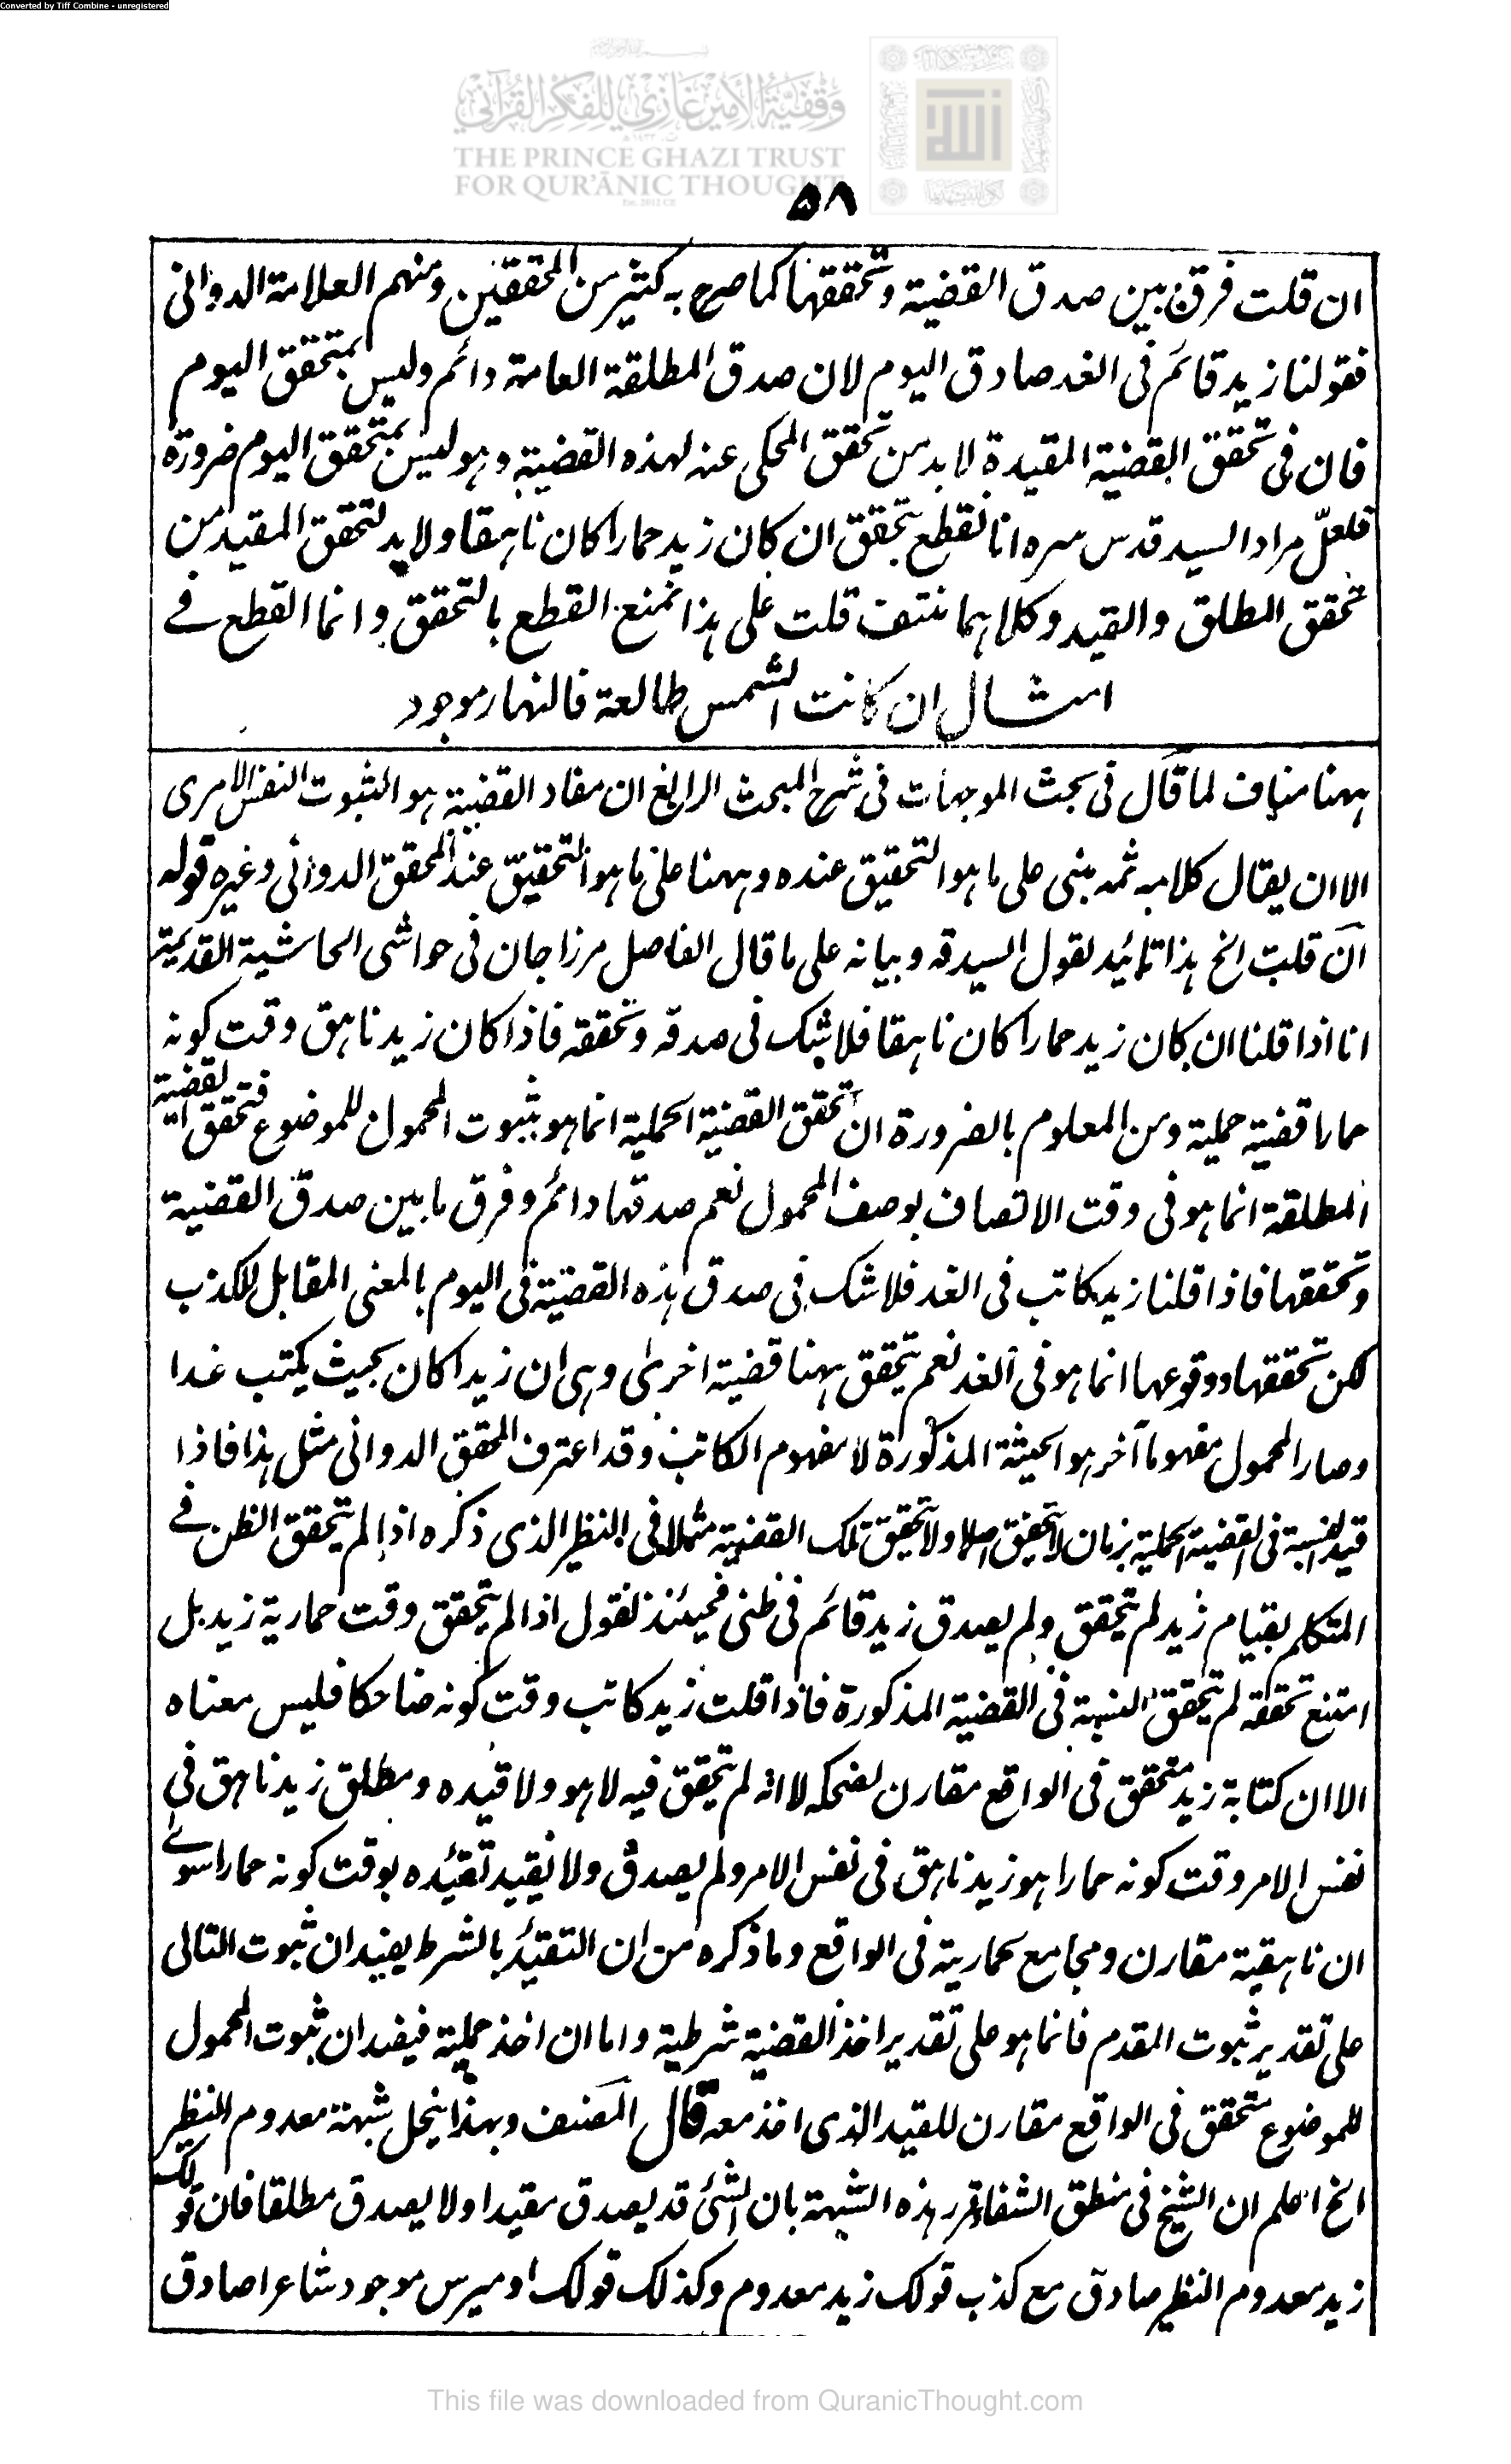 Converted by Tiff Combine - unregistered
وقفية الأمير غازي للفكر القرآني
THE PRINCE GHAZI TRUST
FOR QUR'ĀNIC THOUGHT
Est. 2012 CE
۵۸
ان قلت فرق بين صدق القضية وتحققها كما صرح به كثير من المحققين ومنهم العلامة الدوانى
فقولنا زيد قائم فى الغد صادق اليوم لان صدق المطلقة العامة دائم وليس بمتحقق اليوم
فان فى تحقق القضية المقيدة لا بد من تحقق المحكى عنه لهذه القضية وهو ليس بمتحقق اليوم ضرورة
فلعلّ مراد السيد قدس سره انا نقطع بتحقق ان كان زيد حمارا كان ناهقا ولا بد لتحقق المقيد من
تحقق المطلق والقيد وكلاهما منتف قلت على هذا نمنع القطع بالتحقق وانما القطع فے
امثال ان كانت الشمس طالعة فالنهار موجود
ههنا مناف لما قال فى بحث الموجهات فى شرح المبحث الرابع ان مفاد القضية هو الثبوت النفس الامرى
الا ان يقال كلامه ثمه مبنى على ما هو التحقيق عنده وههنا على ما هو التحقيق عند المحقق الدوانى وغيره قوله
ان قلت الخ هذا تائيد لقول السيد قه وبيانه على ما قال الفاضل مرزا جان فى حواشى الحاشية القديمة
انا اذا قلنا ان كان زيد حمارا كان ناهقا فلا شك فى صدقه وتحققه فاذا كان زيد ناهق وقت كونه
حمارا قضية حملية ومن المعلوم بالضرورة ان تحقق القضية الحملية انما هو بثبوت المحمول للموضوع فتحقق القضية
المطلقة انما هو فى وقت الاتصاف بوصف المحمول نعم صدقها دائم وفرق ما بين صدق القضية
وتحققها فاذا قلنا زيد كاتب فى الغد فلا شك فى صدق هذه القضية فى اليوم بالمعنى المقابل للكذب
لكن تحققها ووقوعها انما هو فى الغد نعم يتحقق ههنا قضية اخرى وهى ان زيدا كان بحيث يكتب غدا
وصار المحمول مفهوما آخر هو الحيثة المذكورة لا مفهوم الكاتب وقد اعترف المحقق الدوانى مثل هذا فاذا
قيد النسبة فى القضية الحملية بزمان لا يتحقق اصلا ولا يتحقق تلك القضية مثلا فى النظير الذى ذكره اذا لم يتحقق الظن فے
المتكلم بقيام زيد لم يتحقق ولم يصدق زيد قائم فى ظنى فحينئذ نقول اذا لم يتحقق وقت حمارية زيد بل
امتنع تحققه لم يتحقق النسبة فى القضية المذكورة فاذا قلت زيد كاتب وقت كونه ضاحكا فليس معناه
الا ان كتابة زيد متحقق فى الواقع مقارن لضحكه لا انه لم يتحقق فيه لا هو ولا قيده ومطلق زيد ناهق فى
نفس الامر وقت كونه حمارا هو زيد ناهق فى نفس الامر ولم يصدق ولا يفيد تقئيده بوقت كونه حمارا سوے
ان ناهقية مقارن ومجامع لحمارية فى الواقع وما ذكره من ان التقئيد بالشرط يفيد ان ثبوت التالى
على تقدير ثبوت المقدم فانما هو على تقدير اخذ القضية شرطية واما ان اخذ حملية فيفيد ان ثبوت المحمول
للموضوع متحقق فى الواقع مقارن للقيد الذى اخذ معه قال المصنف وبهذا ينحل شبهة معدوم النظير
الخ اعلم ان الشيخ فى منطق الشفا قرر هذه الشبهة بان الشئ قد يصدق مقيدا ولا يصدق مطلقا فان قولك
زيد معدوم النظير صادق مع كذب قولك زيد معدوم وكذلك قولك اوميرس موجود شاعرا صادق
This file was downloaded from QuranicThought.com